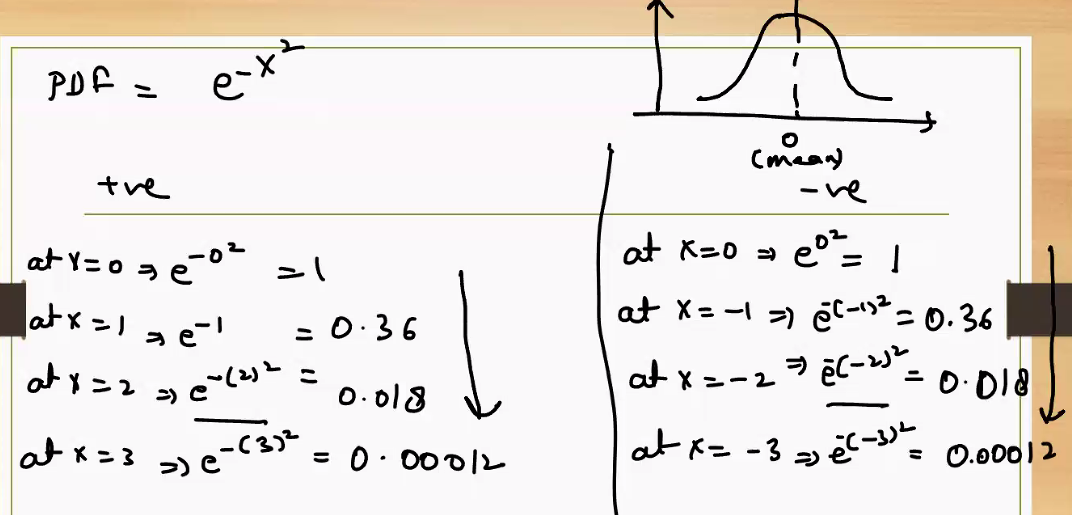 PDF = e^-x^2
0
(mean)
+ve
-ve
at x=0 ⇒ e^-0^2 = 1
at x=1 ⇒ e^-1 = 0.36
at x=2 ⇒ e^-(2)^2 = 0.018
at x=3 ⇒ e^-(3)^2 = 0.00012
at x=0 ⇒ e^0^2 = 1
at x=-1 ⇒ e^-(-1)^2 = 0.36
at x=-2 ⇒ e^-(-2)^2 = 0.018
at x=-3 ⇒ e^-(-3)^2 = 0.00012